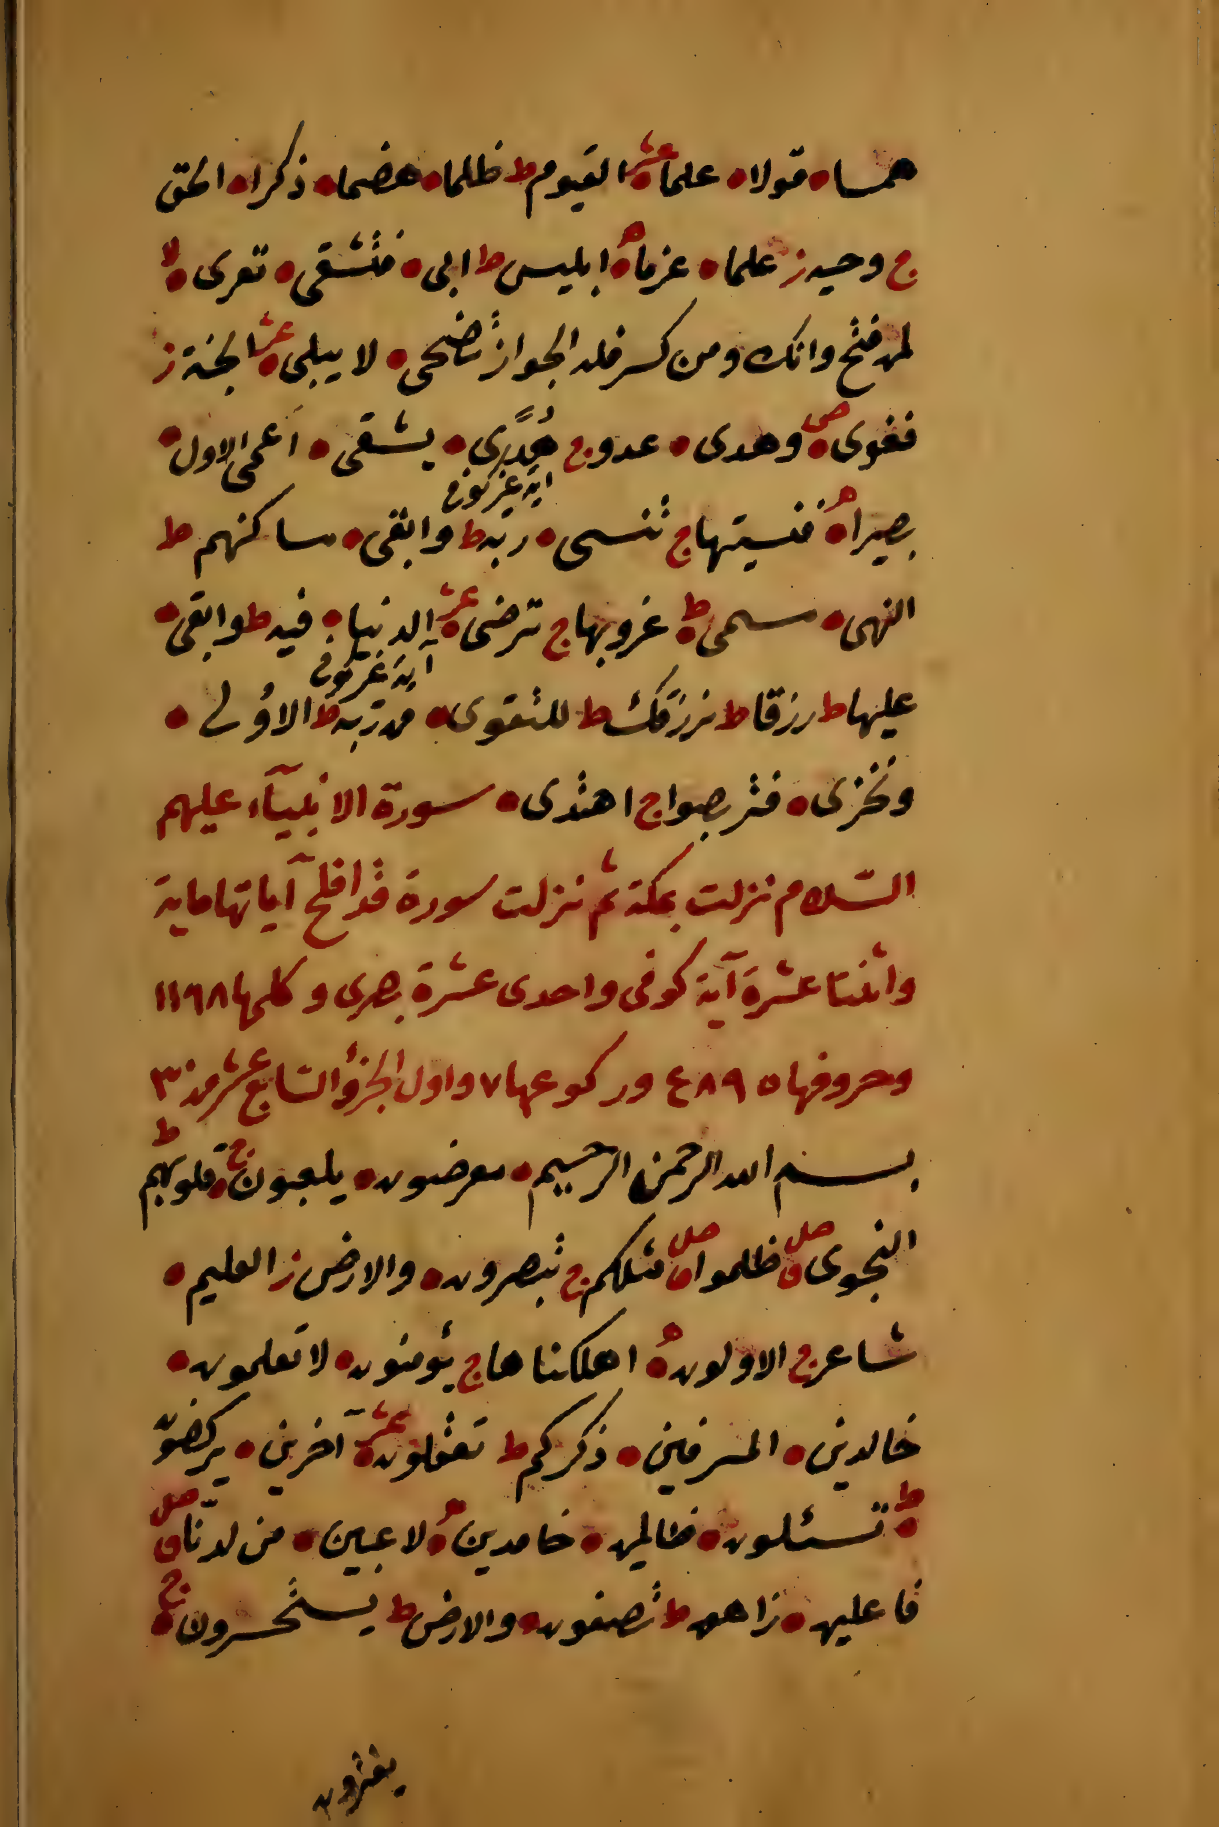 همسا ه قولا ه علما ه عشر القيوم ط ظلما ه هضما ه ذكرا ه الحق
ج وحيه ز علما ه عزما ه ه ابليس ط ابى ه فتشقى ه تعرى ه لا
لمن فتح وانك ومن كسر فله الجواز تضحى ه لا يبلى ه عشر الجنة ز
فغوى ه ص وهدى ه عدو ج هُدًى ه يشقى ه اعمى الاول ه
آية غير كوفى
بصيرا ه ه فنسيتها ج تنسى ه ربه ط وابقى ه مساكنهم ط
النهى ه مسمى ه ط غروبها ج ترضى ه عشر الدنيا ه فيه ط وابقى ه
آية غير كوفى
عليها ط رزقا ط نرزقك ط للتقوى ه من ربه ط الاولى ه
ونخزى ه فتربصوا ج اهتدى ه سورة الانبيآء عليهم
السّلام نزلت بمكة ثم نزلت سورة قد افلح آياتها ماية
واثنتا عشرة آية كوفى واحدى عشرة بصرى وكلمها ١١٩٨
وحروفها ٤٨٩٥ وركوعها ٧ واول الجزؤ السّابع عشر من ٣٠
بسم الله الرحمن الرحيم ه معرضون ه يلعبون ه ج قلوبهم ط
النجوى ق صل ظلموا ق صل مثلكم ج تبصرون ه والارض ز العليم ه
شاعر ج الاولون ه ه اهلكناها ج يؤمنون ه لا تعلمون ه
خالدين ه المسرفين ه ذكركم ط تعقلون ه عشر آخرين ه يركضون
ه ط تسئلون ه ظالمين ه خامدين ه ه لاعبين ه من لدنّا ق صل
فاعلين ه زاهق ط تصفون ه والارض ط يستحسرون ه ج
يفترون